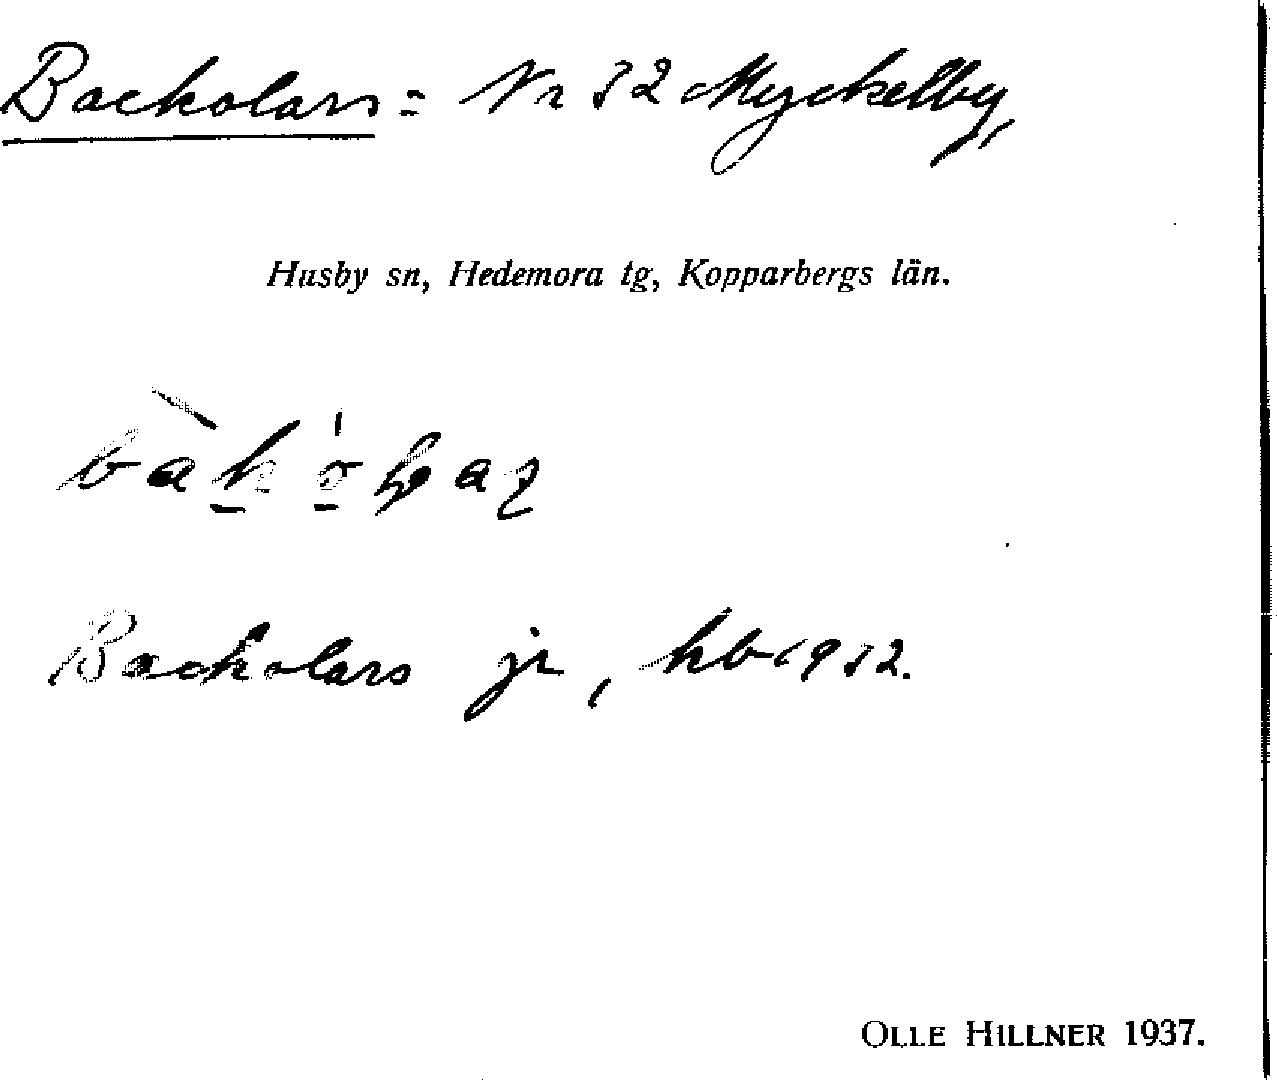 Backolars = Nr 32 Myckelby,
Husby sn, Hedemora tg, Kopparbergs län.
Backolars jr, hb 1932.
OLLE HILLNER 1937.